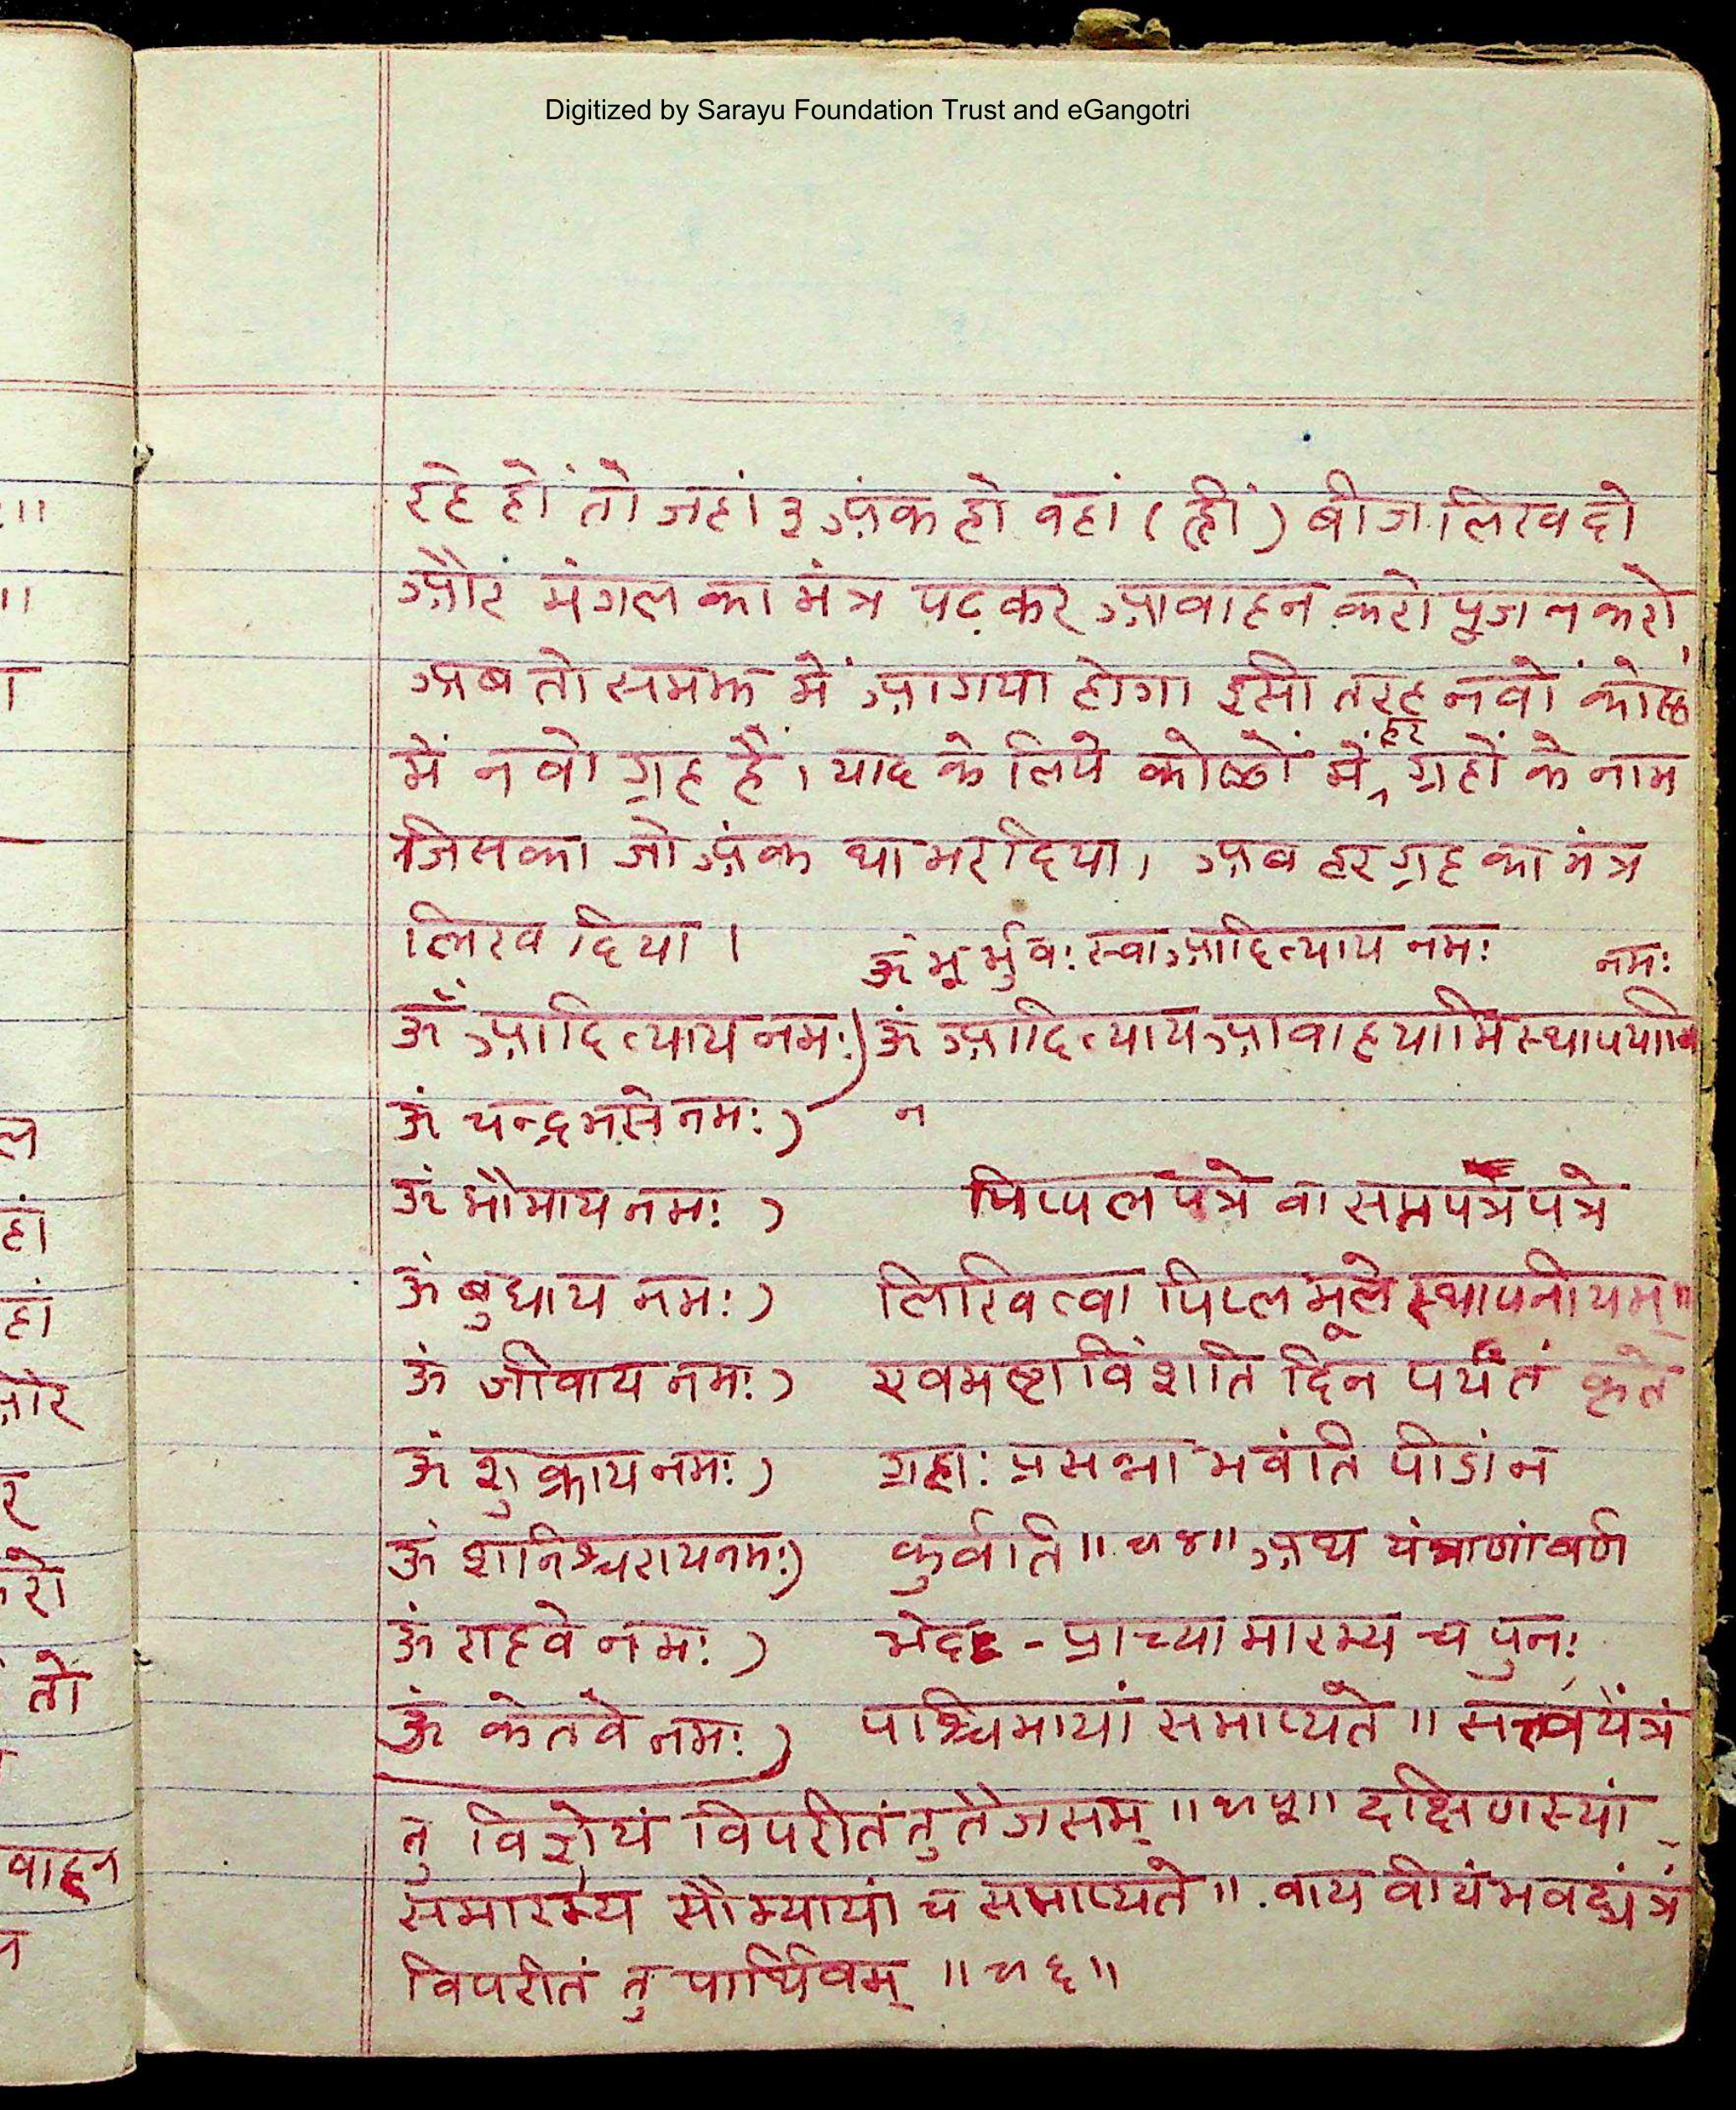 Digitized by Sarayu Foundation Trust and eGangotri
रहे हों तो जहां ३ अंक हो वहां (ह्रीं) बीज लिख दो
और मंगल का मंत्र पढ़कर आवाहन करो पूजन करो,
अब तो समझ में आ गया होगा इसी तरह नवों कोष्ठ
में नवो ग्रह हैं। याद के लिये कोष्ठों में हर ग्रहों के नाम
जिसका जो अंक था भर दिया। अब हर ग्रह का मंत्र
लिख दिया।
ॐ भूर्भुवः स्वा आदित्याय नमः नमः
ॐ आदित्याय नमः) ॐ आदित्याय आवाहयामि स्थापयामि
ॐ चन्द्रमसे नमः) न
ॐ भौमाय नमः) पिप्पल पत्रे वा सप्तपत्रे पत्रे
ॐ बुधाय नमः) लिखित्वा पिप्लमूले स्थापनीयम्॥
ॐ जीवाय नमः) एवमष्टाविंशति दिन पर्यंतं कृते
ॐ शुक्राय नमः) ग्रहाः प्रसन्ना भवंति पीडां न
ॐ शनिश्चराय नमः) कुर्वति॥७४॥ अथ यंत्राणां वर्ण
ॐ राहवे नमः) भेद - प्राच्यामारभ्य च पुनः
ॐ केतवे नमः) पश्चिमायां समाप्यते॥ यंत्रं
तु विज्ञेयं विपरीतं तु तैजसम्॥७५॥ दक्षिणस्यां
समारभ्य सौम्यायां च समाप्यते॥ वायवीयं भवद्यंत्रं
विपरीतं तु पार्थिवम्॥७६॥
वाहन
तो